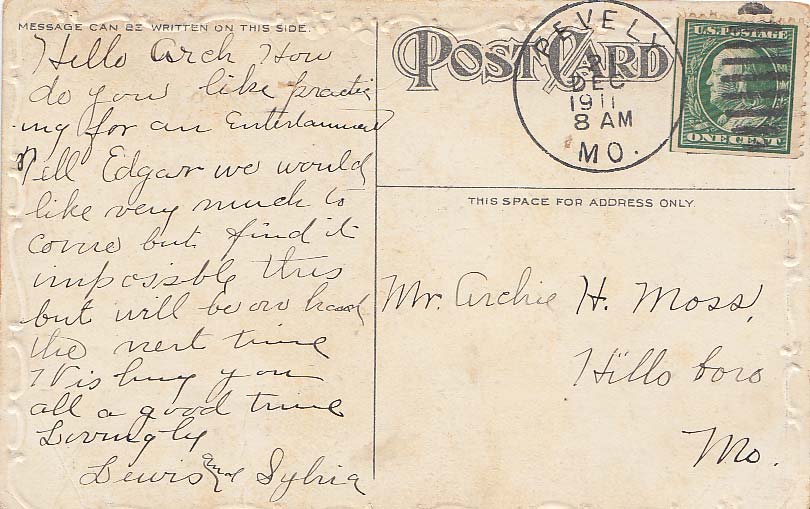 MESSAGE CAN BE WRITTEN ON THIS SIDE.
Hello Arch How
do you like practic
ing for an Entertainment
Tell Edgar we would
like very much to
come but find it
impossible this
but will be on hand
the next time
Wishing you
all a good time
Lovingly
Lewis and Sylvia
POST CARD
DEVELL
21
DEC
1911
8 AM
MO.
U.S. POSTAGE
ONE CENT
THIS SPACE FOR ADDRESS ONLY.
Mr. Archie H. Moss,
Hillsboro
Mo.